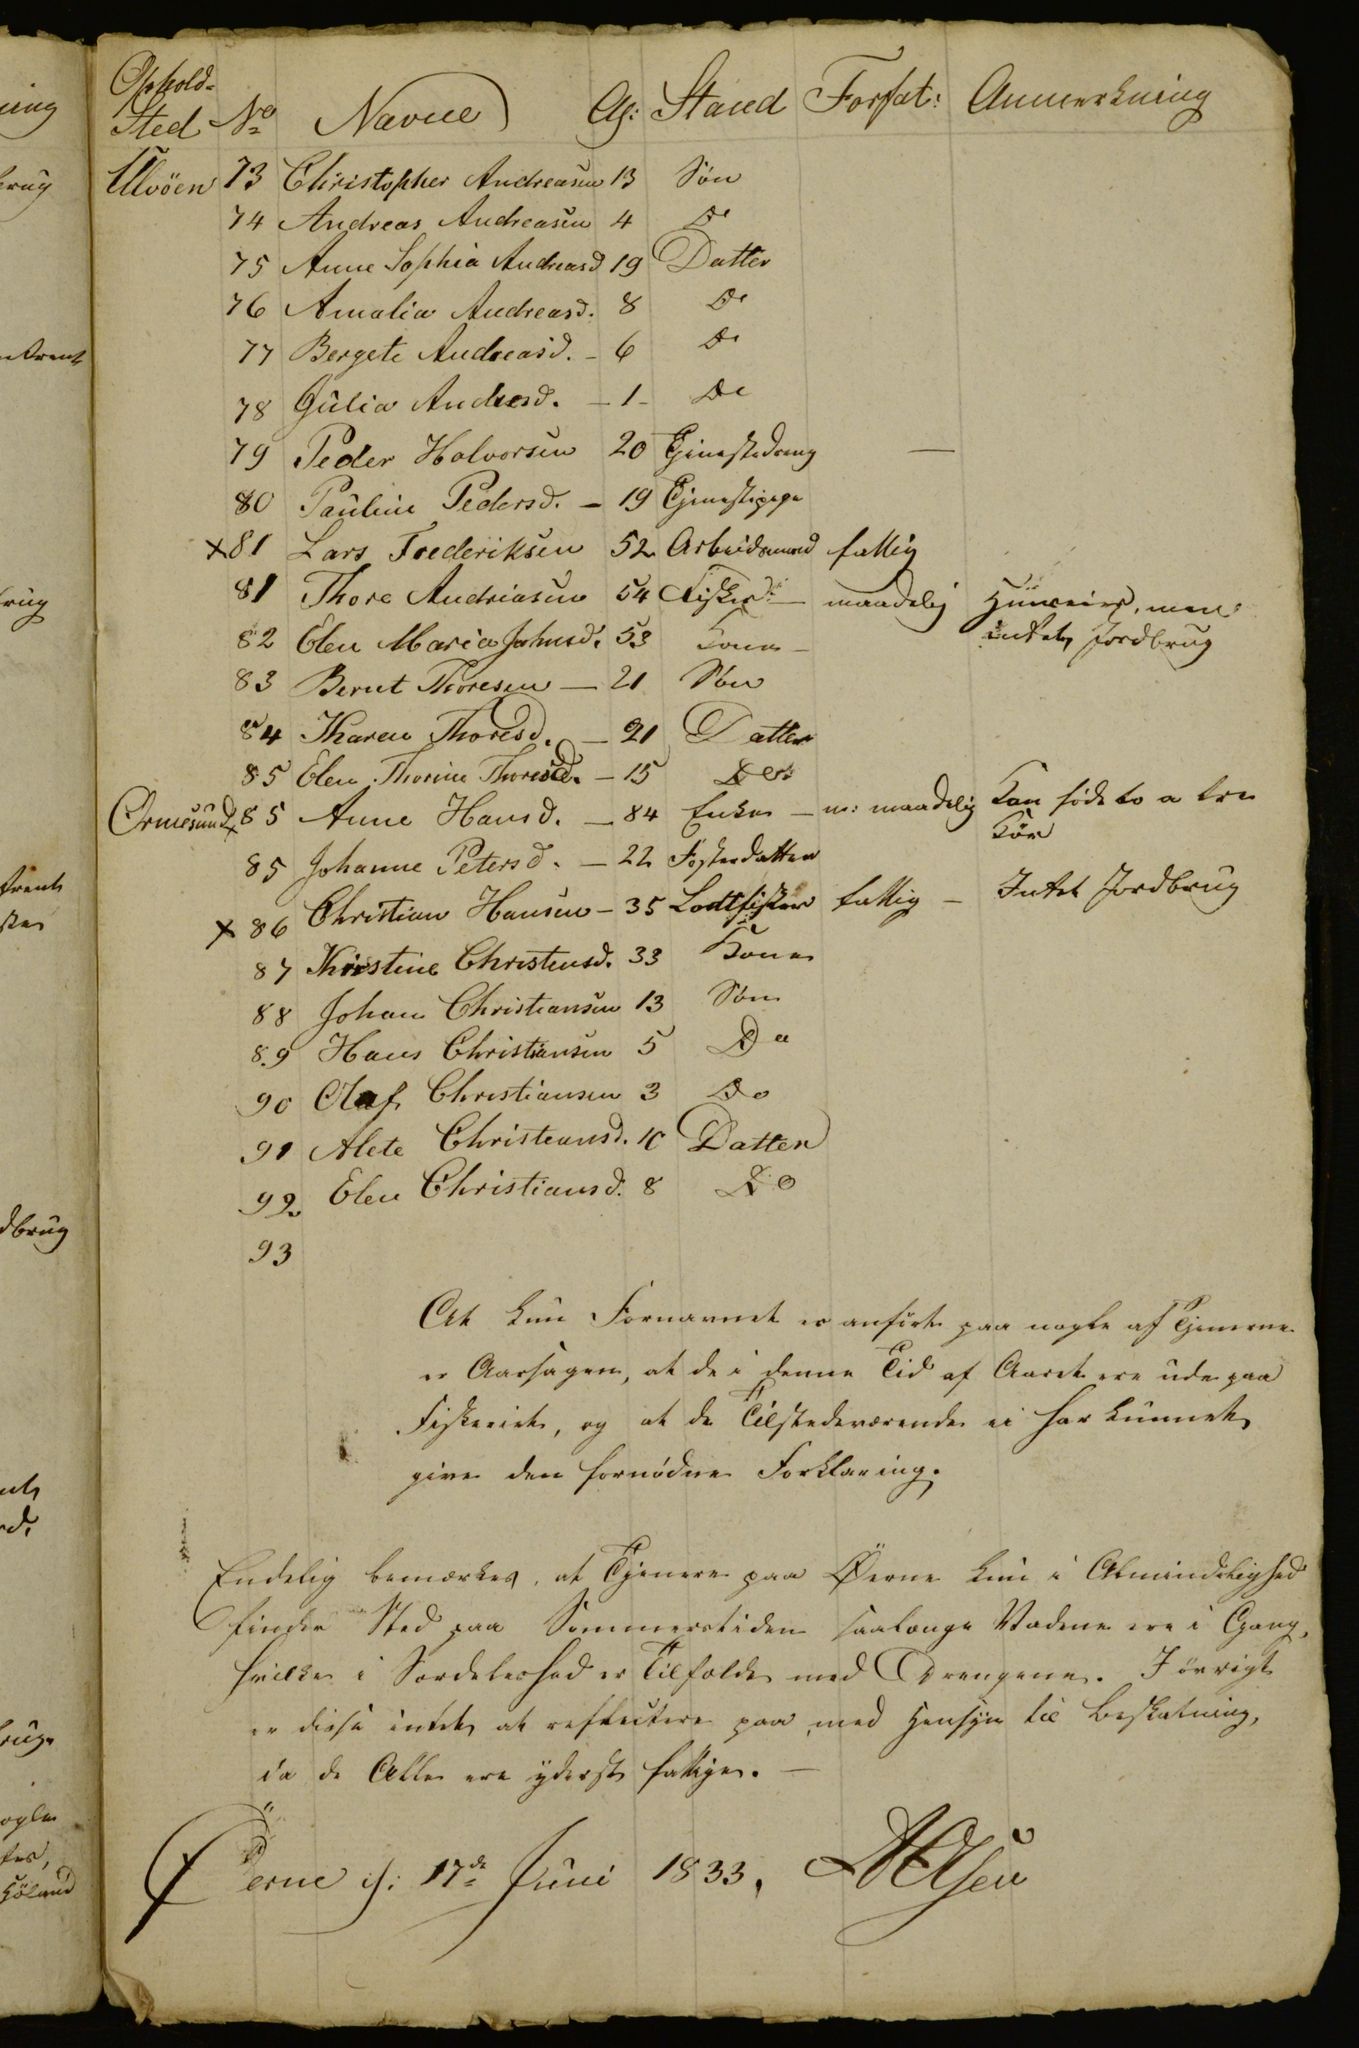 Ophold-
Sted No Navne Al: Stand Forfat: Anmerkning
Ulvöen 73 Christopher Andreasen 13 Søn
74 Andreas Andreasen 4 Do
75 Anne Sophia Andreasd 19 Datter
76 Amalia Andreasd. 8 Do
77 Bergete Andreasd. - 6 Do
78 Gulia Andresd. - 1 - Do
79 Peder Halvorsen 20 Tjenestedreng —
80 Pauline Pedersd. - 19 Tjenestepige
x 81 Lars Frederiksen 52 Arbeidsmand fattig
81 Thore Andreasen 54 Fisker - maadelig Huuseier, men
82 Elen Maria Johnsd. 53 Kone - intet Jordbrug
83 Bernt Thoresen — 21 Søn
84 Karen Thoresd. — 21 Datter
85 Elen Thorine Thoresd. - 15 Do
Ormesund x 85 Anne Hansd. — 84 Enke - m: maadelig Kan føde to a tre
Kør
85 Johanne Petersd. — 22 Fosterdatter
x 86 Christian Hansen - 35 Lodtfisker fattig - Intet Jordbrug
87 Kirstine Christensd. 33 Kone
88 Johan Christiansen 13 Søn
89 Hans Christiansen 5 Do
90 Olaf Christiansen 3 Do
91 Alete Christiansd. 10 Datter
92 Elen Christiansd. 8 Do
93
At kun Fornavnet er anført paa nogle af Tjenerne
er Aarsagen, at de i denne Tid af Aaret ere ude paa
Fiskeriet, og at de Tilstedeværende ei har kunnet
give den fornødne Forklaring.
Endelig bemærkes, at Tjenere paa Øerne kun i Almindelighed
finder Sted paa Sommerstiden saalænge Vadene ere i Gang,
hvilket i Særdeleshed er Tilfælde med Drengene. I øvrigt
er disse intet at reflectere paa med Hensyn til Beskatning,
da de Alle ere yderst fattige. —
Öerne d: 17de Juni 1833. Olsen